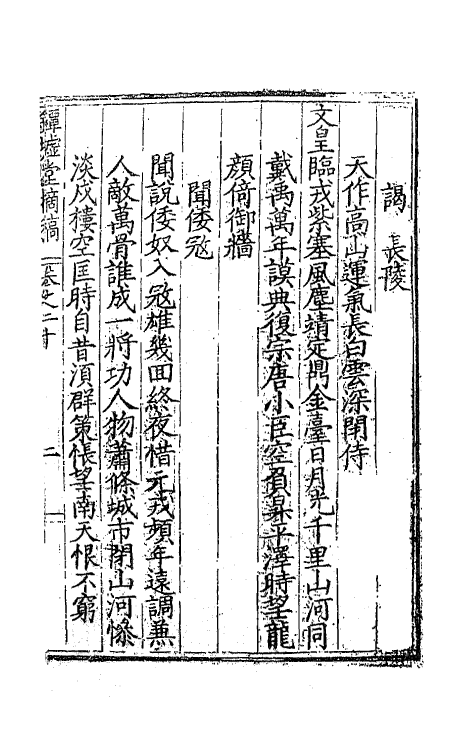 謁 長陵
天作高山運氣長白雲深閉侍
文皇臨戎紫塞風塵靖定鼎金臺日月光千里山河同
戴禹萬年謨典復宗唐小臣空負昇平澤時望龍
顔倚御牆
聞倭寇
聞說倭奴入寇雄幾回終夜惜元戎頻年遠調兼
人敵萬骨誰成一將功人物蕭條城市閉山河慘
淡戍樓空匡時自昔須群策悵望南天恨不窮
鐔墟堂摘稿 卷之二十 二